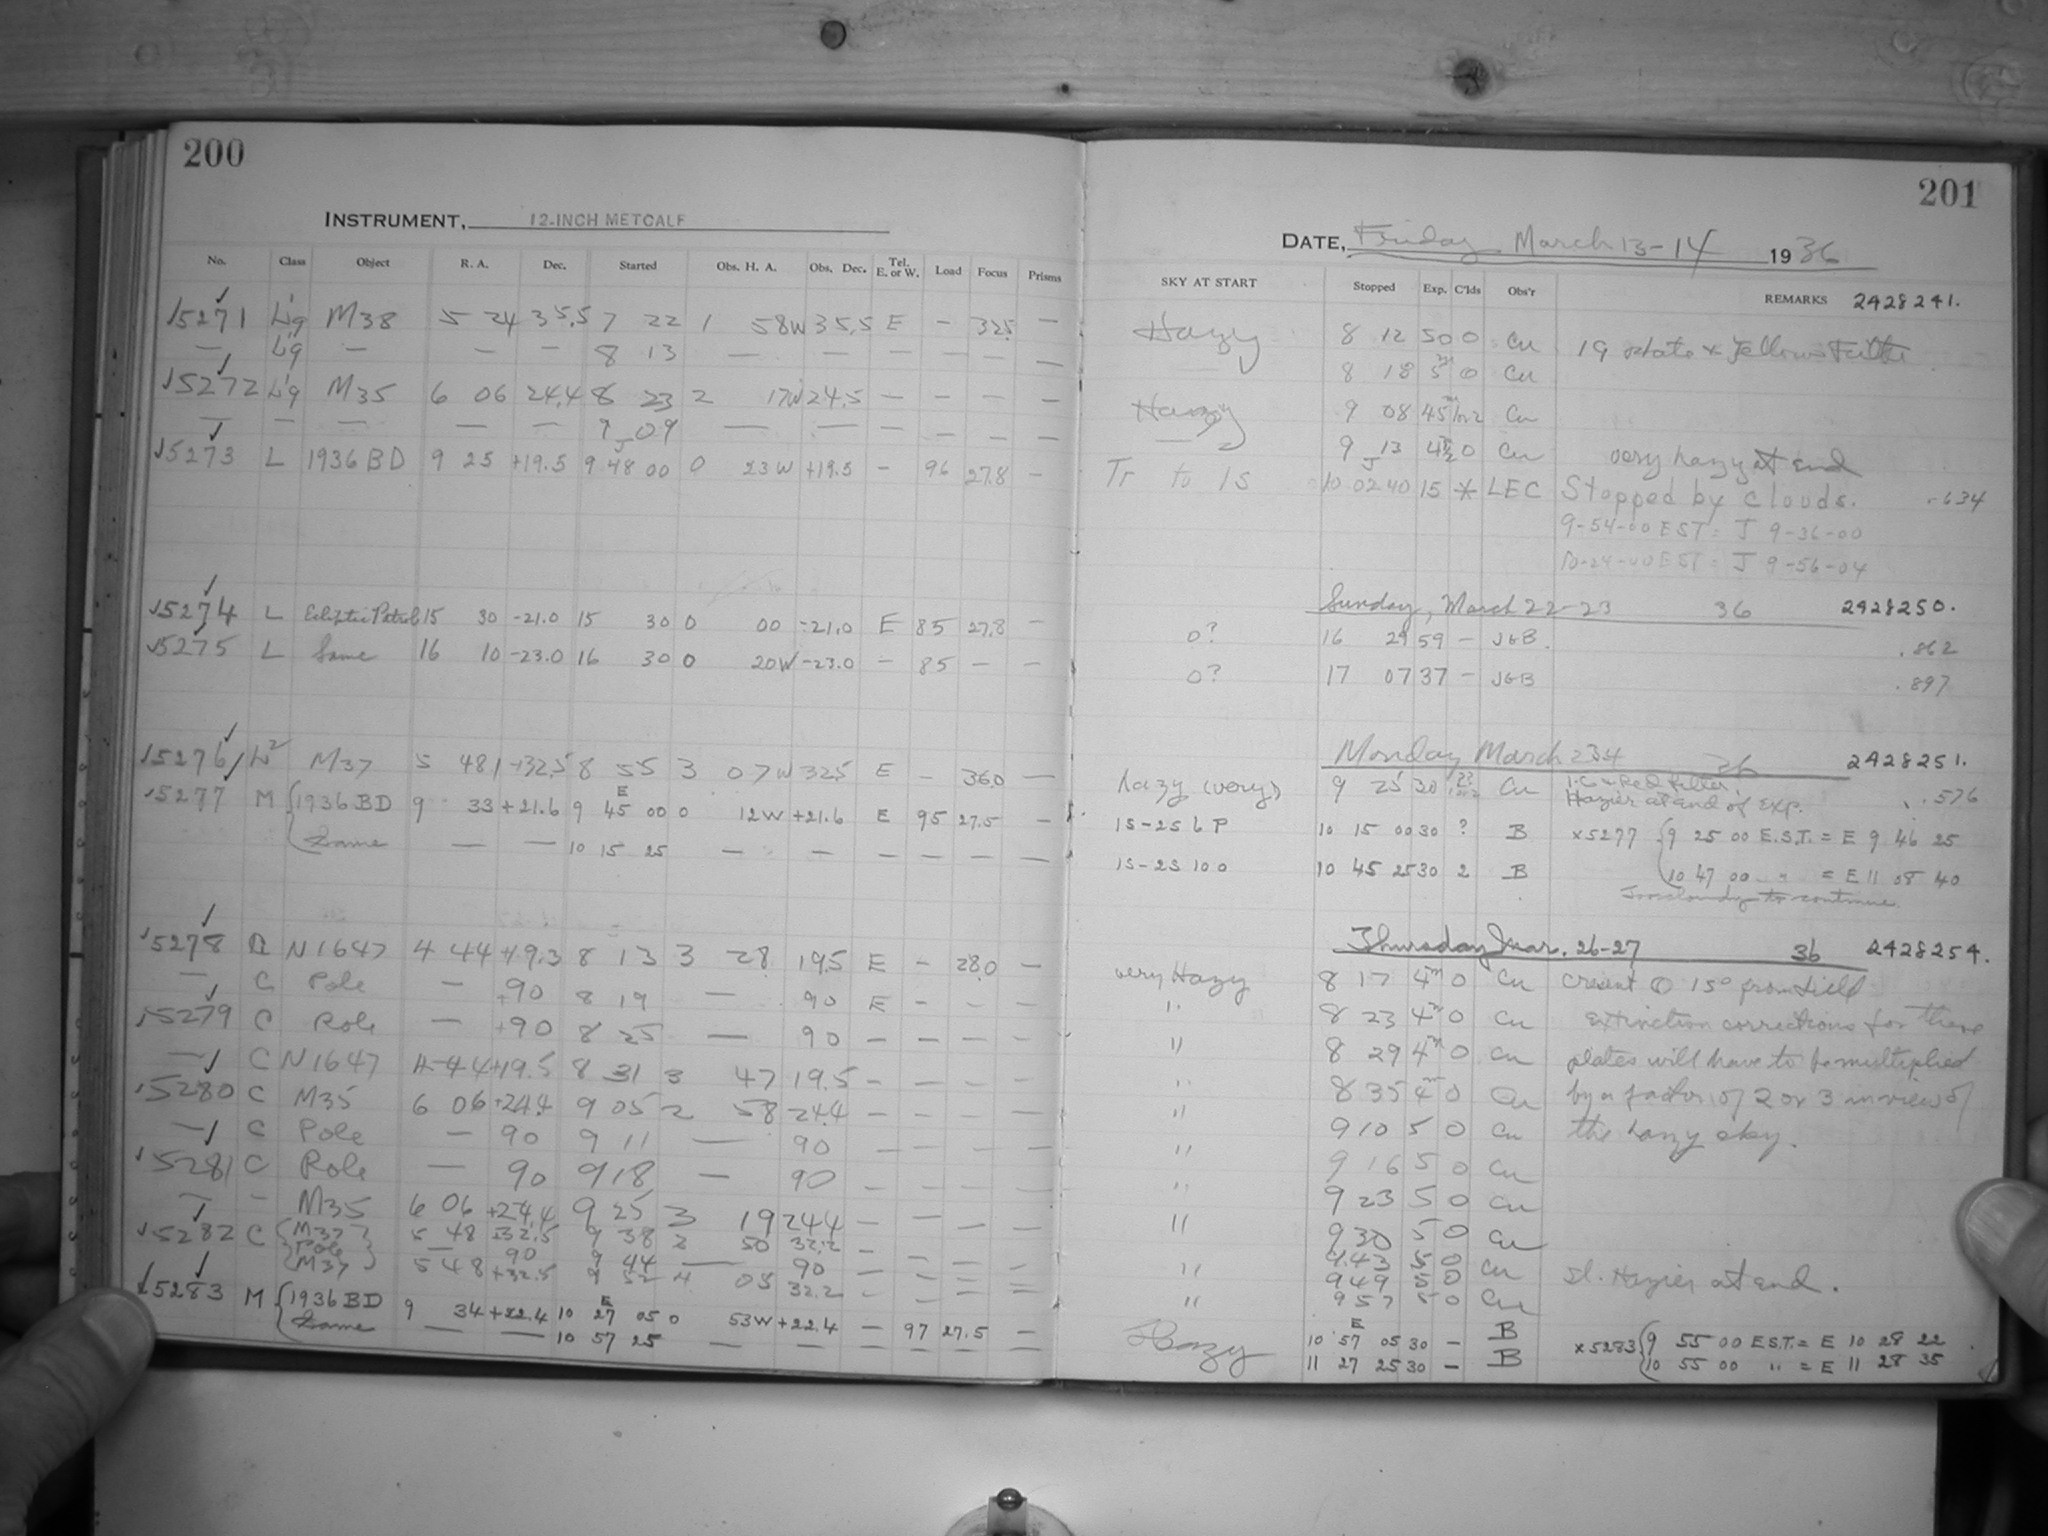 200
INSTRUMENT, 12-INCH METCALF
No. Class Object R. A. Dec. Started Obs. H. A. Obs. Dec. Tel. E. or W. Load Focus Prisms
15271 M38 5 24 35.5 7 22 1 58W 35.5 E - 32.5 —
— — — — 8 13 — — — — — —
15272 M35 6 06 24.4 8 23 2 17W 24.5 — — — —
— — — — — 9 09 — — — — — —
15273 L 1936 BD 9 25 +19.5 9 48 00 0 23W +19.5 - 96 27.8 —
15274 L Ecliptic Patrol 15 30 -21.0 15 30 0 00 -21.0 E 85 27.8 —
15275 L Same 16 10 -23.0 16 30 0 20W -23.0 - 85 — —
15276 M37 5 48.1 +32.5 8 55 3 07W 32.5 E - 36.0 —
15277 M 1936 BD 9 33 +21.6 9 45 00 0 12W +21.6 E 95 27.5 —
Same — — 10 15 25 — — — — — —
15278 N1647 4 44 +19.3 8 13 3 28 19.5 E - 28.0 —
— C Pole — +90 8 19 — 90 E - - -
15279 C Pole — +90 8 25 — 90 - - - -
— C N1647 4 44 +19.5 8 31 3 47 19.5 - - - -
15280 C M35 6 06 +24.4 9 05 2 58 24.4 - - - -
— C Pole — 90 9 11 — 90 - - - -
15281 C Pole — 90 9 18 — 90 - - - -
— - M35 6 06 +24.4 9 25 3 19 24.4 - - - -
15282 C M37 5 48 +32.5 9 38 2 50 32.2 - - - -
Pole — 90 9 44 — 90 - - - -
M37 5 48 +32.5 9 52 4 05 32.2 - - - -
15283 M 1936 BD 9 34 +22.4 10 E 27 05 0 53W +22.4 - 97 27.5 —
Same — — 10 57 25 — — — — — —
201
DATE, Friday March 13-14 1936
SKY AT START Stopped Exp. C'lds Obs'r REMARKS 2428241.
Hazy 8 12 50 0 Cu 1G plate & yellow
8 18 5m 0 Cu
Hazy 9 08 45m Cu
— 9 13 4m 0 Cu very hazy at end
Tr to 1S 10 02 40 15 * LEC Stopped by clouds. .634
9-54-00 EST = J 9-36-00
10-24-00 EST = J 9-56-04
Sunday, March 22-23 36 2428250.
0? 16 29 59 - JGB. .862
0? 17 07 37 - JGB .897
Monday March 36 2428251.
hazy (very) 9 25 30 Cu Red filter. .576
Hazier at end of Exp.
1S-2S 6 P 10 15 00 30 ? B x5277 9 25 00 E.S.T. = E 9 46 25
1S-2S 10 0 10 45 25 30 2 B 10 47 00 " = E 11 08 40
Too cloudy to continue.
Thursday Mar. 26-27 36 2428254.
very Hazy 8 17 4m 0 Cu 15° from field
" 8 23 4m 0 Cu Extinction corrections for these
" 8 29 4m 0 Cu plates will have to be multiplied
" 8 35 4m 0 Cu by a factor of 2 or 3 in view of
" 9 10 5 0 Cu the hazy sky.
" 9 16 5 0 Cu
" 9 23 5 0 Cu
" 9 30 5 0 Cu
" 9 43 5 0 Cu Sl. Hazier at end.
9 49 5 0
" 9 57 5 0 Cu
Hazy 10 E 57 05 30 - B x5283 9 55 00 EST. = E 10 28 22
11 27 25 30 - B 10 55 00 " = E 11 28 35